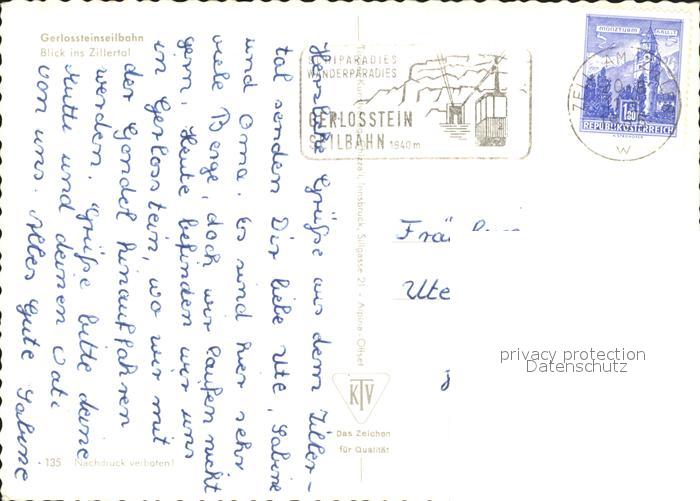 Gerlossteinseilbahn
Blick ins Zillertal
Herzliche Grüße aus dem Ziller-
tal senden Dir liebe Ute, Sabine
und Oma. Es sind hier sehr
viele Berge, doch wir laufen nicht
gern. Heute befinden wir uns
in Gerlosstein, wo wir mit
der Gondel hinauffahren
werden. Grüße bitte deine
Mutti und deinen Vati
von uns. Alles Gute Sabine
135 Nachdruck verboten!
SKIPARADIES
WANDERPARADIES
GERLOSSTEIN
SEILBAHN 1640m
Innsbruck, Sillgasse 21 - Alpina-Offset
KTV
Das Zeichen
für Qualität
MÜNZTURM HALL I.T.
1.80
REPUBLIK ÖSTERREICH
ZELL AM
W
Ute
privacy protection
Datenschutz